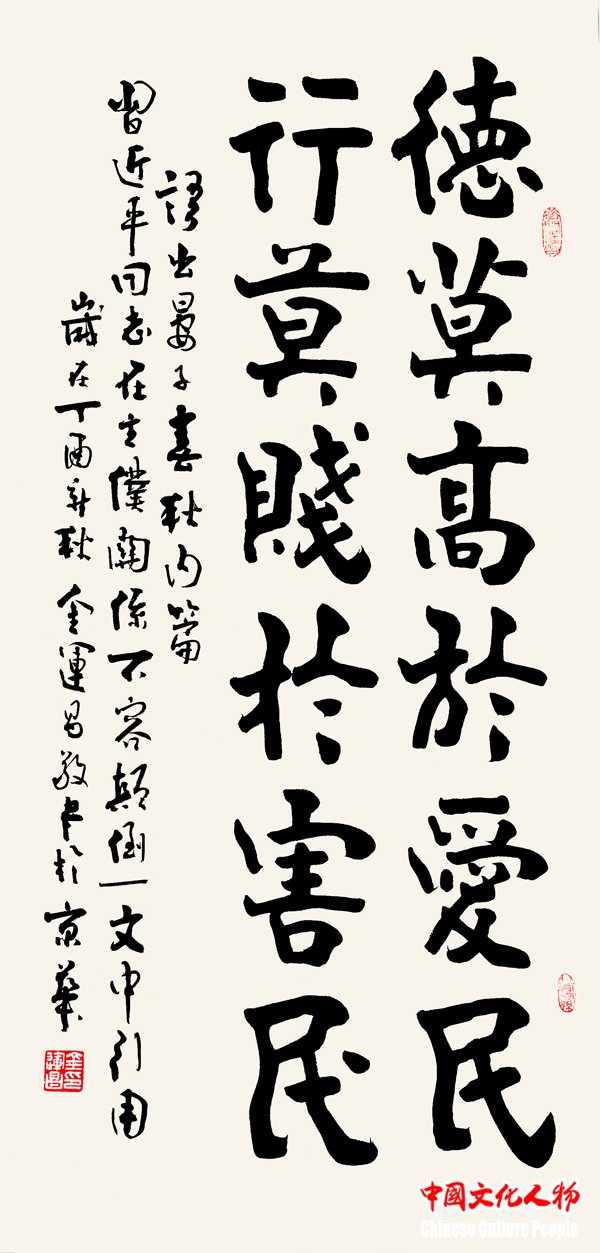 德莫高於愛民
行莫賤於害民
語出晏子春秋內篇
習近平同志在主僕關係不容顛倒一文中引用
歲在丁酉新秋金運昌敬書於京華
中國文化人物
Chinese Culture People